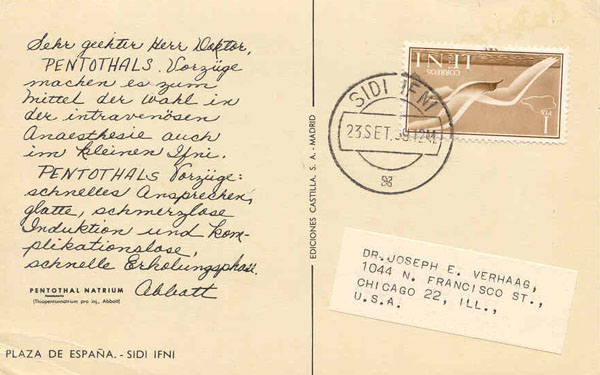 Sehr geehrter Herr Doktor,
PENTOTHALS Vorzüge
machen es zum
Mittel der Wahl in
der intravenösen
Anaesthesie auch
im kleinen Ifni.
PENTOTHALS Vorzüge:
schnelles Ansprechen,
glatte, schmerzlose
Induktion und kom-
plikationslose,
schnelle Erholungsphase.
Abbott
PENTOTHAL NATRIUM
(Thiopentonnatrium pro inj., Abbott)
PLAZA DE ESPAÑA. - SIDI IFNI
EDICIONES CASTILLA, S. A. - MADRID
SIDI IFNI
23 SET. 59 12M.
IFNI
CORREOS
1
DR. JOSEPH E. VERHAAG,
1044 N. FRANCISCO ST.,
CHICAGO 22, ILL.,
U.S.A.